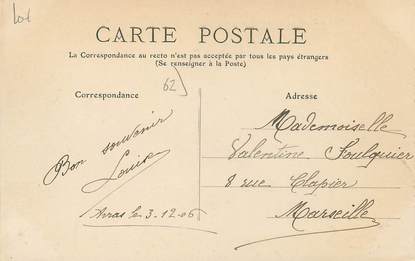 Lot
CARTE POSTALE
La Correspondance au recto n'est pas acceptée par tous les pays étrangers
(Se renseigner à la Poste)
62)
Correspondance
Adresse
Bon souvenir
Louise
Arras le 3-12-06
Mademoiselle
Valentine Foulquier
8 rue Clapier
Marseille